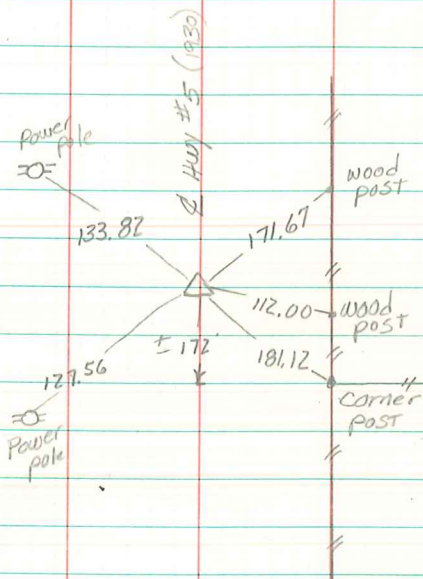 ℄ Hwy #5 (1930)
Power
pole
wood
post
133.82
171.67
112.00
wood
post
± 172'
181.12
127.56
Corner
post
Power
pole